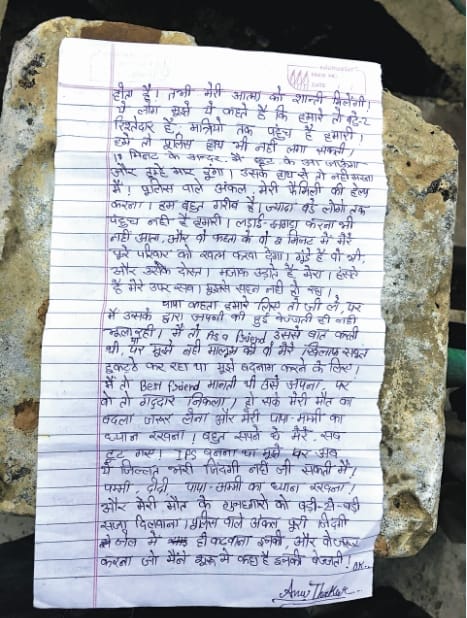 होता है। तभी मेरी आत्मा को शान्ती मिलेगी।
ये लोग मुझे ये कहते है कि हमारे तो बडे-2
रिश्तेदार है, मंत्रियो तक पहुंच है हमारी।
हमे तो पुलिस हाथ भी नहीं लगा सकती,
10 मिनट के अन्दर मैं छूट के आ जाऊगा
और तुम्हें मार दूगा। उसके हाथ से तो नही मरना
मैं! पुलिस वाले अंकल, मेरी फैमिली की हेल्प
करना। हम बहुत गरीब है। ज्यादा बडे लोगो तक
पहुच नही है हमारी। लडाई-झगडा करना भी
नहीं आता, और वो कहता के वो 2 मिनट में मेरे
पूरे परिवार को खत्म करवा देगा। गुंडे है वो भी,
और उसके दोस्त। मजाक उडाते है मेरा। हंसते
है मेरे उपर सब। मुझसे सहन नही हो रहा।
पापा कहता हमारे लिए तो जी ले, पर
मैं उसके द्वारा अपनी की हुई बेज्जती ही नही
भूला रही। मैं तो As a friend उससे बात करती
थी, पर मुझे नही मालूम की वो मेरे खिलाफ सबूत
इकट्ठे कर रहा था मुझे बदनाम करने के लिए।
मैं तो Best friend मानती थी उसे अपना, पर
वो तो गद्दार निकला। हो सके मेरी मौत का
बदला जरूर लेना और मेरी पापा-मम्मी का
ध्यान रखना। बहुत सपने थे मेरे, सब
टूट गए। IPS बनना था मुझे पर अब
ये जिल्लत भरी जिंदगी नही जी सकती मैं।
पम्मी, दीदी पापा-मम्मी का ध्यान रखना।
और मेरी मौत के गुनहगारो को बडी-से-बडी
सजा दिलवाना। पुलिस वाले अंकल, पूरी जिंदगी
जेल में ही कटवाना इनकी, और वो जरूर
करना जो मैंने शुरू मे कहा है इनकी बेज्जती। ok...
Anu Thakur